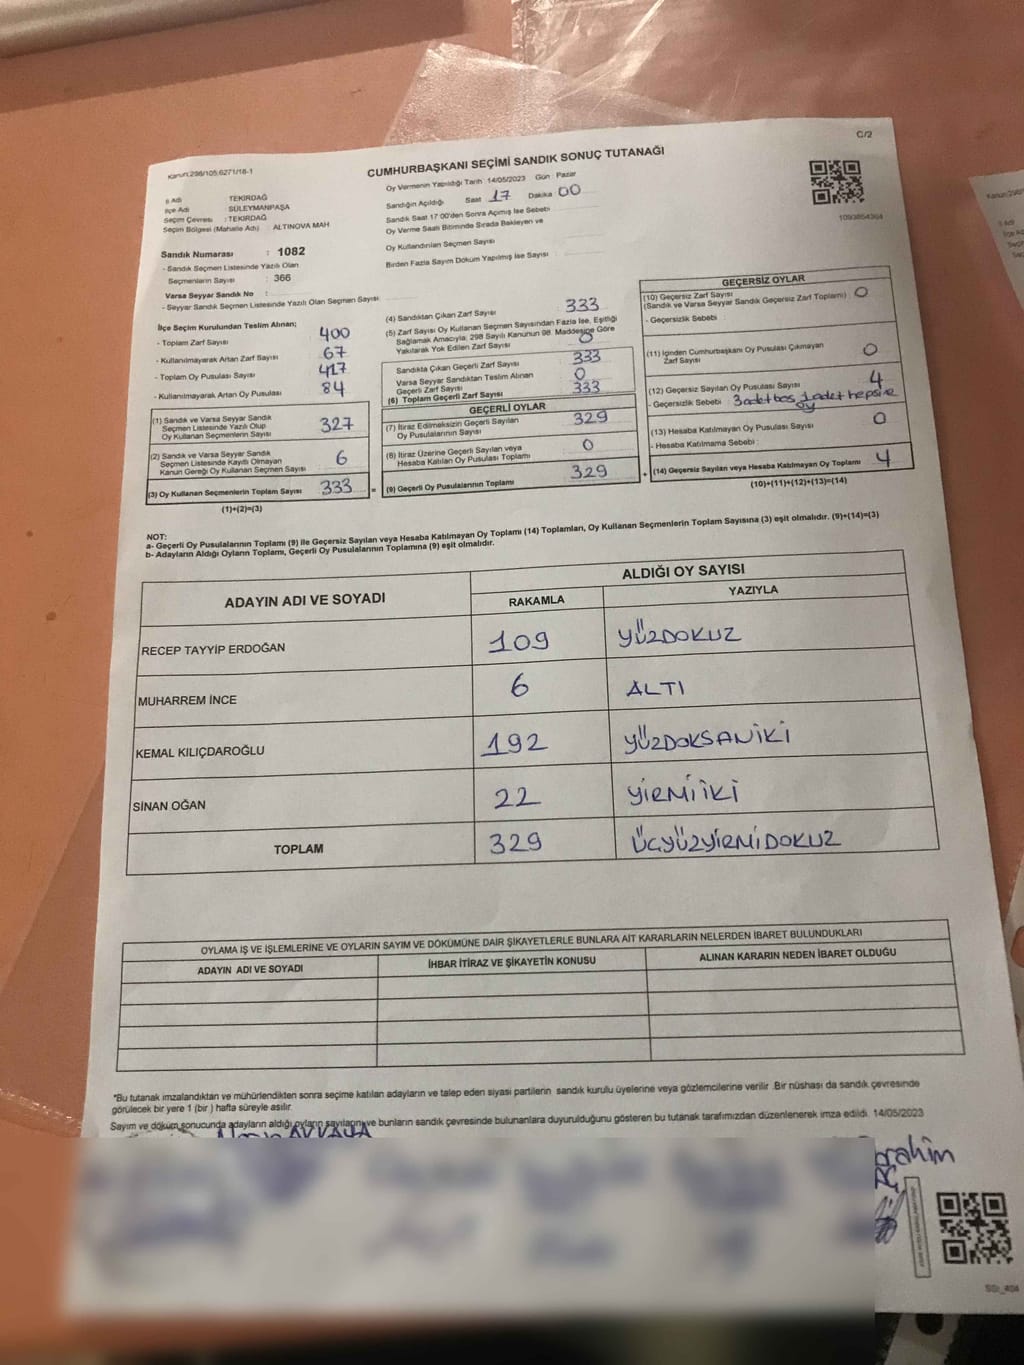 C/2
Kanun:298/105,6271/18-1
CUMHURBAŞKANI SEÇİMİ SANDIK SONUÇ TUTANAĞI
Oy Vermenin Yapıldığı Tarih :14/05/2023 Gün : Pazar
İl Adı TEKİRDAĞ
İlçe Adı SÜLEYMANPAŞA
Seçim Çevresi : TEKİRDAĞ
Seçim Bölgesi (Mahalle Adı) : ALTINOVA MAH
Sandığın Açıldığı Saat 17 Dakika 00
Sandık Saat 17 00'den Sonra Açımış İse Sebebi
Oy Verme Saati Bitiminde Sırada Bekleyen ve
Oy Kullandırılan Seçmen Sayısı
Birden Fazla Sayım Döküm Yapılmış İse Sayısı :
Sandık Numarası : 1082
- Sandık Seçmen Listesinde Yazılı Olan
Seçmenlerin Sayısı : 366
Varsa Seyyar Sandık No :
- Seyyar Sandık Seçmen Listesinde Yazılı Olan Seçmen Sayısı:
İlçe Seçim Kurulundan Teslim Alınan;
- Toplam Zarf Sayısı 400
- Kullanılmayarak Artan Zarf Sayısı 67
- Toplam Oy Pusulası Sayısı 417
- Kullanılmayarak Artan Oy Pusulası 84
(1) Sandık ve Varsa Seyyar Sandık
Seçmen Listesinde Yazılı Olup
Oy Kullanan Seçmenlerin Sayısı 327
(2) Sandık ve Varsa Seyyar Sandık
Seçmen Listesinde Kayıtlı Olmayan
Kanun Gereği Oy Kullanan Seçmen Sayısı 6
(3) Oy Kullanan Seçmenlerin Toplam Sayısı 333 =
(1)+(2)=(3)
(4) Sandıktan Çıkan Zarf Sayısı 333
(5) Zarf Sayısı Oy Kullanan Seçmen Sayısından Fazla İse, Eşitliği
Sağlamak Amacıyla; 298 Sayılı Kanunun 98. Maddesine Göre
Yakılarak Yok Edilen Zarf Sayısı 0
Sandıkta Çıkan Geçerli Zarf Sayısı 333
Varsa Seyyar Sandıktan Teslim Alınan
Geçerli Zarf Sayısı 0
(6) Toplam Geçerli Zarf Sayısı 333
GEÇERLİ OYLAR
(7) İtiraz Edilmeksizin Geçerli Sayılan
Oy Pusulalarının Sayısı 329
(8) İtiraz Üzerine Geçerli Sayılan ve
Hesaba Katılan Oy Pusulası Toplamı 0
(9) Geçerli Oy Pusulalarının Toplamı 329 +
GEÇERSİZ OYLAR
(10) Geçersiz Zarf Sayısı
(Sandık ve Varsa Seyyar Sandık Geçersiz Zarf Toplamı) : 0
- Geçersizlik Sebebi :
(11) İçinden Cumhurbaşkanı Oy Pusulası Çıkmayan
Zarf Sayısı 0
(12) Geçersiz Sayılan Oy Pusulası Sayısı 4
- Geçersizlik Sebebi : 3 adet boş 1 adet hepsine
oy
(13) Hesaba Katılmayan Oy Pusulası Sayısı 0
- Hesaba Katılmama Sebebi :
(14) Geçersiz Sayılan veya Hesaba Katılmayan Oy Toplamı 4
(10)+(11)+(12)+(13)=(14)
NOT:
a- Geçerli Oy Pusulalarının Toplamı (9) ile Geçersiz Sayılan veya Hesaba Katılmayan Oy Toplamı (14) Toplamları, Oy Kullanan Seçmenlerin Toplam Sayısına (3) eşit olmalıdır. (9)+(14)=(3)
b- Adayların Aldığı Oyların Toplamı, Geçerli Oy Pusulalarının Toplamına (9) eşit olmalıdır.
ADAYIN ADI VE SOYADI
ALDIĞI OY SAYISI
RAKAMLA YAZIYLA
RECEP TAYYİP ERDOĞAN 109 YÜZDOKUZ
MUHARREM İNCE 6 ALTI
KEMAL KILIÇDAROĞLU 192 YÜZDOKSANİKİ
SİNAN OĞAN 22 YİRMİİKİ
TOPLAM 329 ÜÇYÜZYİRMİDOKUZ
OYLAMA İŞ VE İŞLEMLERİNE VE OYLARIN SAYIM VE DÖKÜMÜNE DAİR ŞİKAYETLERLE BUNLARA AİT KARARLARIN NELERDEN İBARET BULUNDUKLARI
ADAYIN ADI VE SOYADI İHBAR İTİRAZ VE ŞİKAYETİN KONUSU ALINAN KARARIN NEDEN İBARET OLDUĞU
*Bu tutanak imzalandıktan ve mühürlendikten sonra seçime katılan adayların ve talep eden siyasi partilerin sandık kurulu üyelerine veya gözlemcilerine verilir .Bir nüshası da sandık çevresinde
görülecek bir yere 1 (bir ) hafta süreyle asılır.
Sayım ve döküm sonucunda adayların aldığı oyların sayılarını ve bunların sandık çevresinde bulunanlara duyurulduğunu gösteren bu tutanak tarafımızdan düzenlenerek imza edildi. 14/05/2023
İbrahim